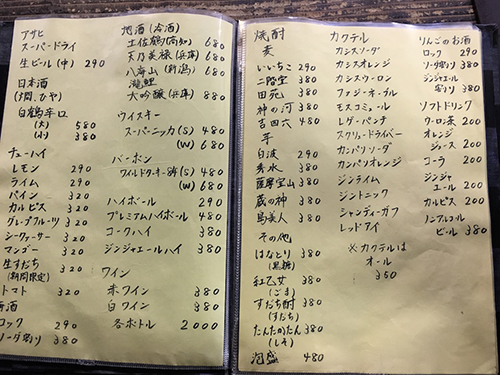 アサヒ
スーパードライ
生ビール(中) 290
日本酒
(燗、ひや)
白鶴辛口
(大) 580
(小) 380
チューハイ
レモン 290
ライム 290
パイン 320
カルピス 320
グレープフルーツ 320
シークァーサー 320
マンゴー 320
生すだち 320
(期間限定)
トマト 320
ロック 290
ソーダ割り 380
地酒(冷酒)
土佐鶴(高知) 680
天乃美禄(兵庫) 680
八海山(新潟) 680
瀧鯉
大吟醸(兵庫) 880
ウイスキー
スーパーニッカ(S) 480
(W) 680
バーボン
ワイルドターキー8年(S) 480
(W) 680
ハイボール 290
プレミアムハイボール 480
コークハイ 380
ジンジャエールハイ 380
ワイン
赤ワイン 380
白ワイン 380
各ボトル 2000
焼酎
麦
いいちこ 290
二階堂 380
田苑 380
神の河 380
吉四六 480
芋
白波 290
秀水 380
薩摩宝山 380
蔵の神 380
島美人 380
その他
はなとり 380
(黒糖)
紅乙女 380
(ごま)
すだち酎 380
(すだち)
たんたかたん 380
(しそ)
泡盛 480
カクテル
カシスソーダ
カシスオレンジ
カシスウーロン
ファジーネーブル
モスコミュール
レゲーパンチ
スクリュードライバー
カンパリソーダ
カンパリオレンジ
ジンライム
ジントニック
シャンディーガフ
レッドアイ
※カクテルは
オール
350
りんごのお酒
ロック 290
ソーダ割り 380
ジンジャエール
割り 380
ソフトドリンク
ウーロン茶 200
オレンジ
ジュース 200
コーラ 200
ジンジャ
エール 200
カルピス 200
ノンアルコール
ビール 380